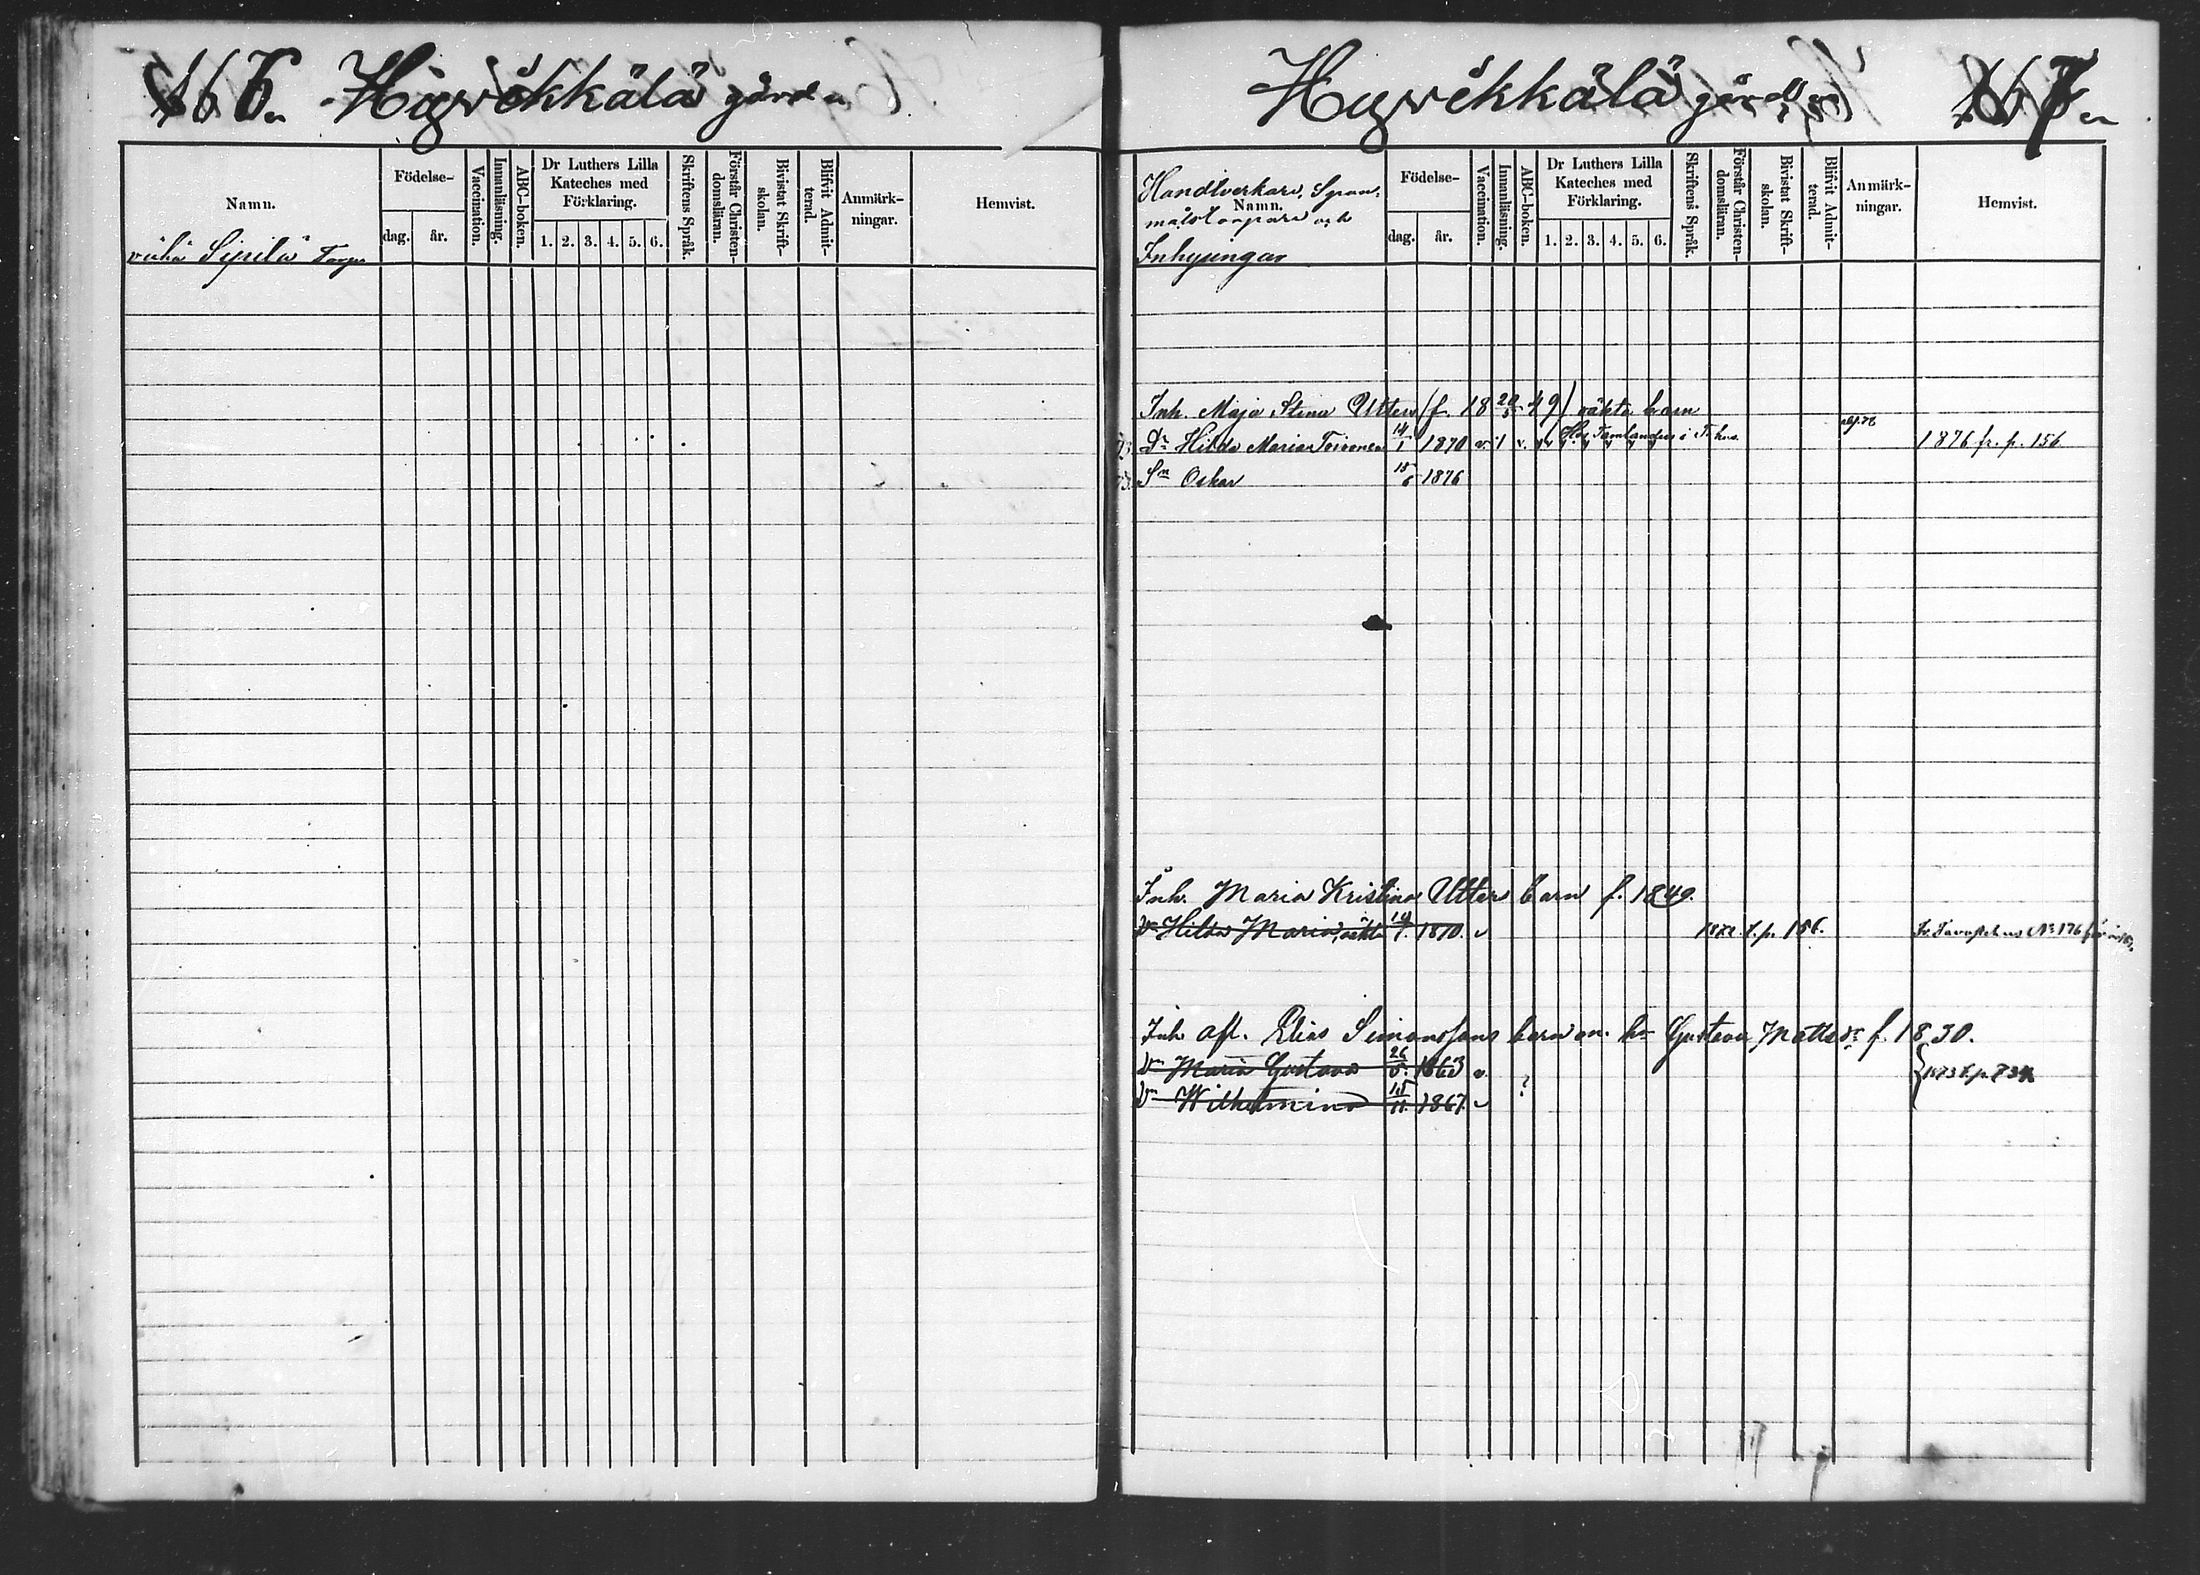 166. Hyvikkälä gård
Namn.
Födelse-
dag. år.
Vaccination.
Innanläsning.
ABC-boken.
Dr Luthers Lilla Kateches med Förklaring.
1. 2. 3. 4. 5. 6.
Skriftens Språk.
Förstår Christen-domsläran.
Bivistat Skrift-skolan.
Blifvit Admit-terad.
Anmärk-ningar.
Hemvist.
vähä Sipilä Torp
Hyvikkälä gård 167
Handtverkare, Span-
Namn.
målstorpare och
Inhysingar
Födelse-
dag. år.
Vaccination.
Innanläsning.
ABC-boken.
Dr Luthers Lilla Kateches med Förklaring.
1. 2. 3. 4. 5. 6.
Skriftens Språk.
Förstår Christen-domsläran.
Bivistat Skrift-skolan.
Blifvit Admit-terad.
Anmärk-ningar.
Hemvist.
Inh. Maja Stina Utters (f. 18 20/5 49) oäkta barn
Dr Hilda Maria Toivonen 14/1 1870 v. 1 v. Hos i T:hus 1876 fr. p. 156
Sn Oskar 15/6 1876
Inh. Maria Kristina Utter barn f. 1849.
Dr Hilda Maria, oäkta 14/1. 1870. v 1872 t. p. 156. Fr. Tavastehus No 176
Inh. afl. Elias Simonssons barn m. h. Gustava Mattsdr f. 1830.
Dr Maria Gustava 26/5. 1863 v. 1873 t. p.
Dr Wilhelmina 15/11. 1867. v ?